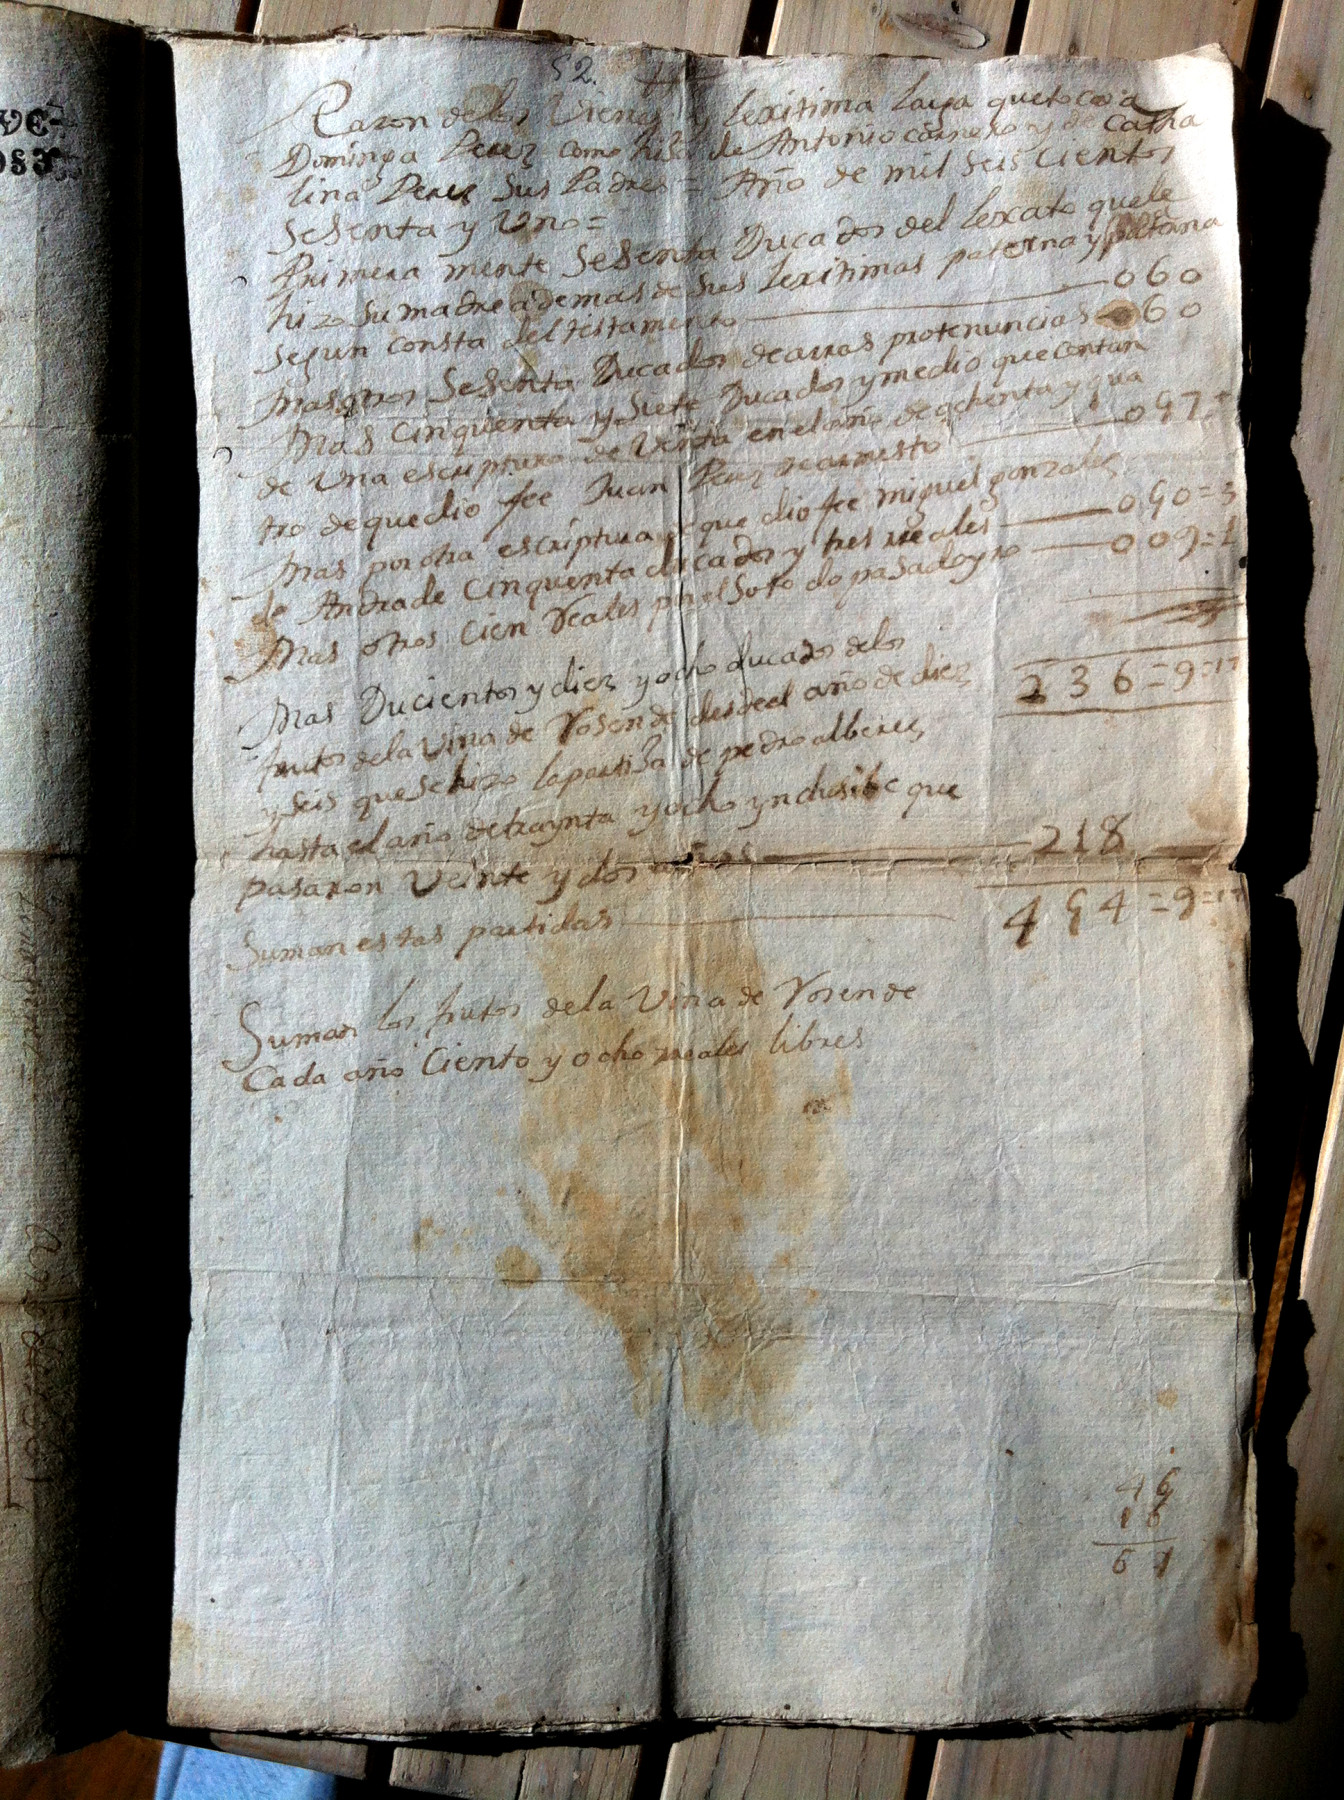 52.
Razon de los Vienes lexitima laya que toca a
Dominga Perez como hija de Antonio carnero y de Catha
lina Perez sus Padres = Año de mil seis cientos
sesenta y Uno =
Primera mente sesenta Ducados del lexato que le
hizo su madre ademas de sus lexitimas paterna y
segun consta del testamento 060
Mas otros Sesenta Ducados de arras protenuncias 60
Mas cinquenta y siete Ducados y medio que contan
de Una escriptura de Venta en el año de ochenta y qua
tro de que dio fee Juan Perez 057
Mas por otra escriptura que dio fee miguel gonzalez
de Andrade Cinquenta ducados y tres reales 050=3
Mas otros Cien Reales por el Soto do pasadoyro 009=1
236=9=17
Mas Ducientos y diez y ocho ducados de los
frutos de la Viña de Rosende desde el año de diez
y seis que se hizo la partixa de pedro alberes
hasta el año de traynta y ocho ynclusibe que
pasaron Veinte y dos años 218
Suman estas partidas 454=9=17
Suman los frutos de la Viña de Rosende
Cada año Ciento y ocho reales libres
46
61